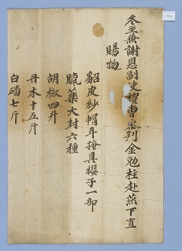 冬至兼謝恩副使禮曹參判金勉柱赴燕下直
賜物
貂皮紗帽耳掩具纓子一部
臘藥大封六種
胡椒四升
丹木十五斤
白磻七斤